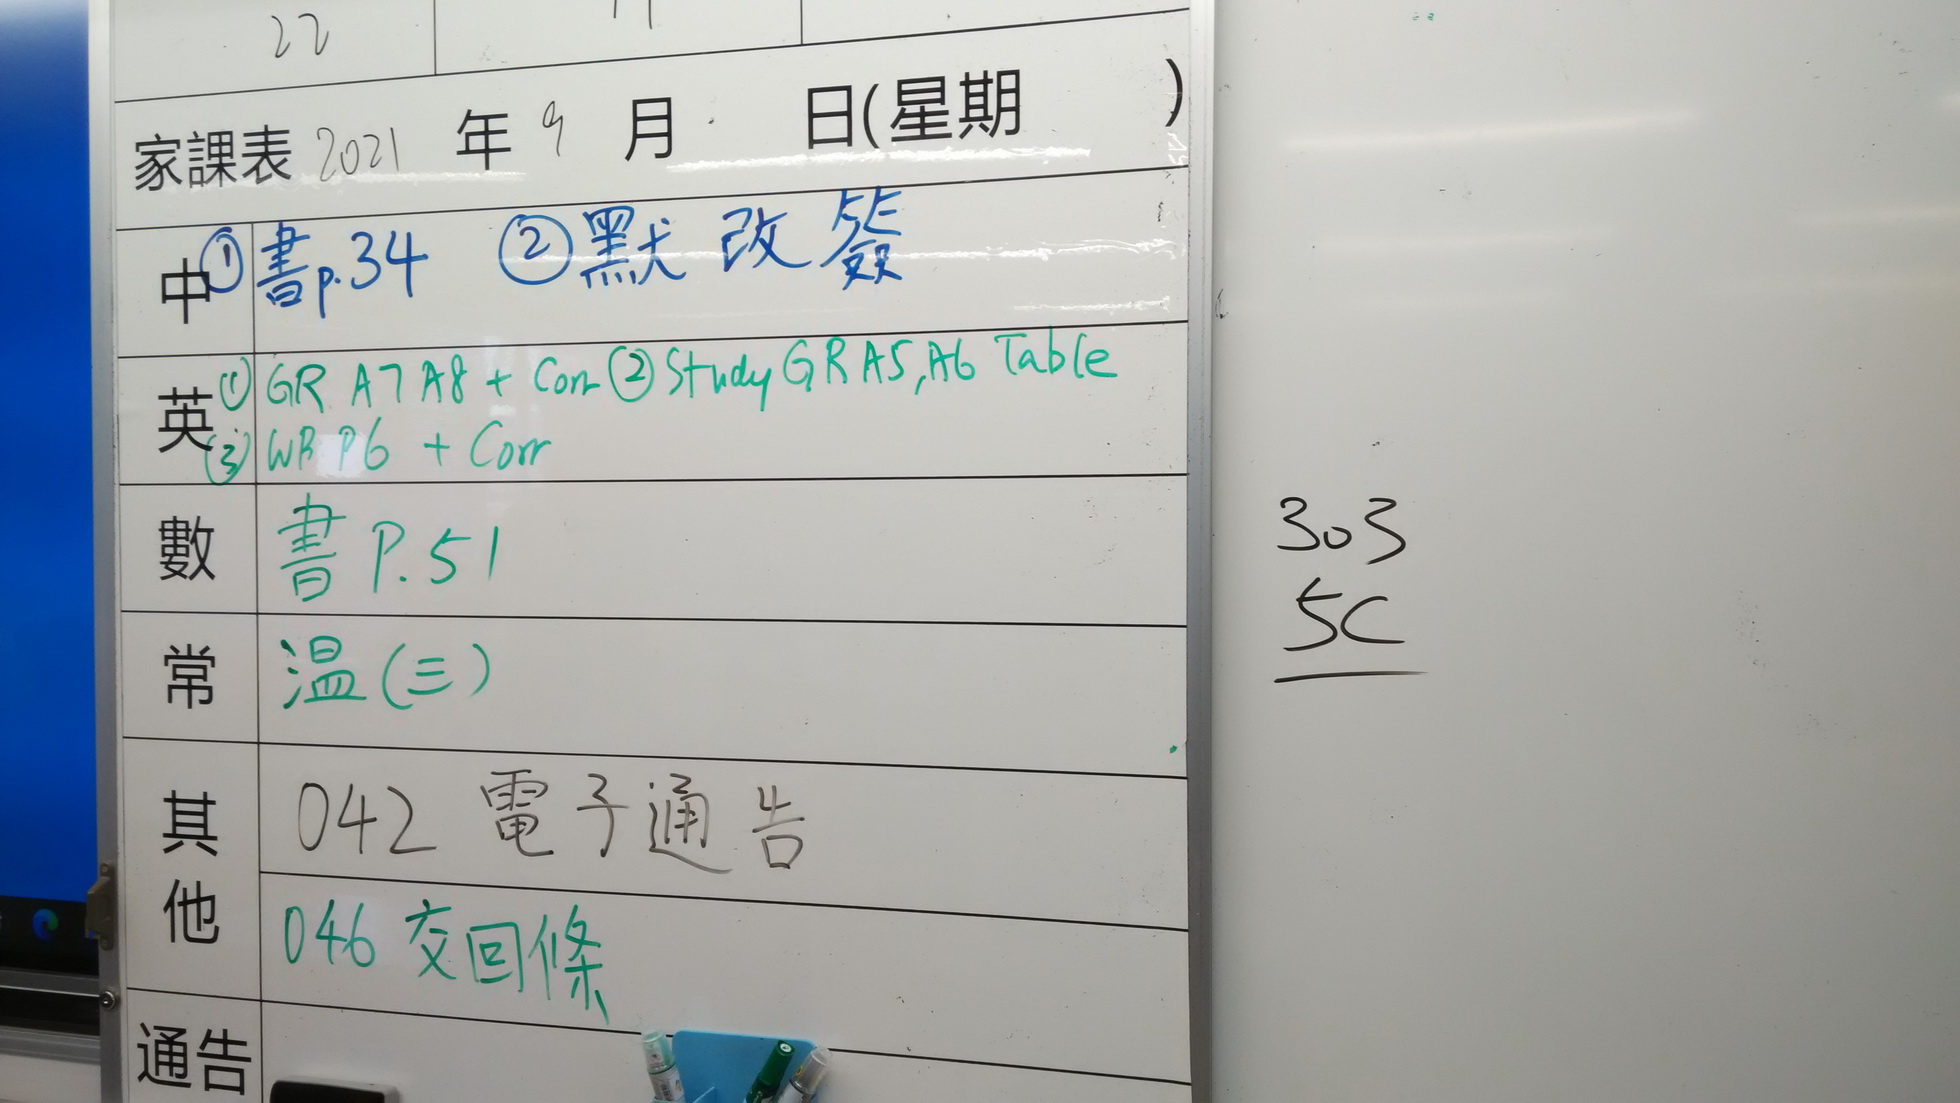 22
家課表 2021 年 9 月 日(星期 )
中 ①書p.34 ②默改簽
英 (1) GR A7 A8 + Corr (2) Study GR A5, A6 Table
(3) WB P6 + Corr
數 書 P.51
常 溫(三)
其他 042 電子通告
046 交回條
通告
303
5C